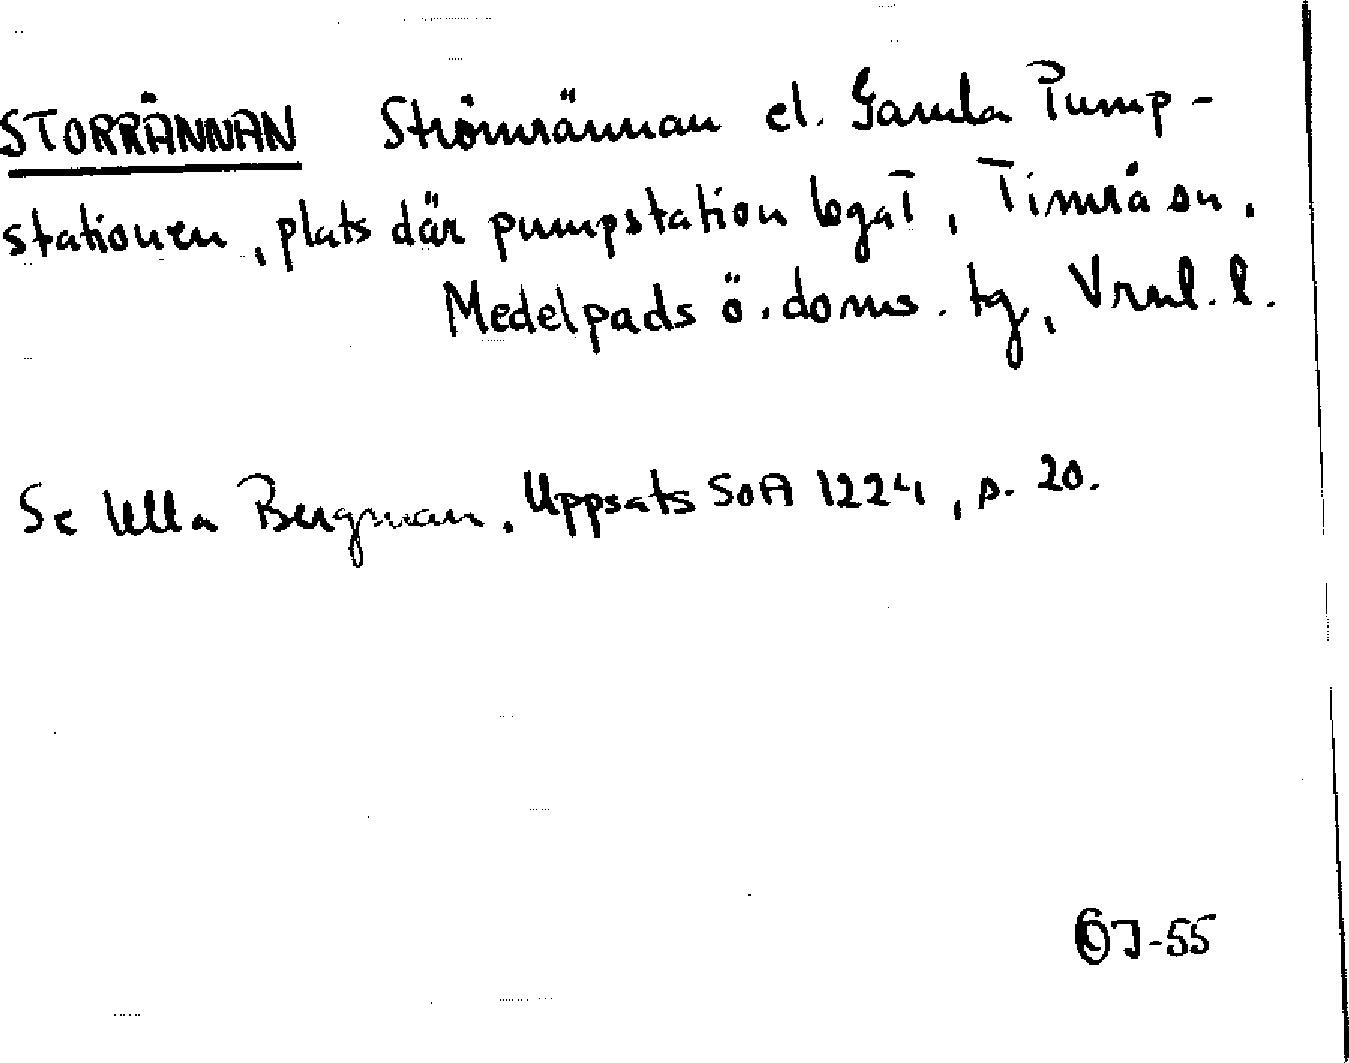 STORRÄNNAN Strömrännan el. Gamla Pump-
stationen, plats där pumpstation legat, Timrå sn.
Medelpads ö. doms. tg, Vrnl. l.
Se Ulla Bergman. Uppsats SOA 1224, s. 20.
J-55